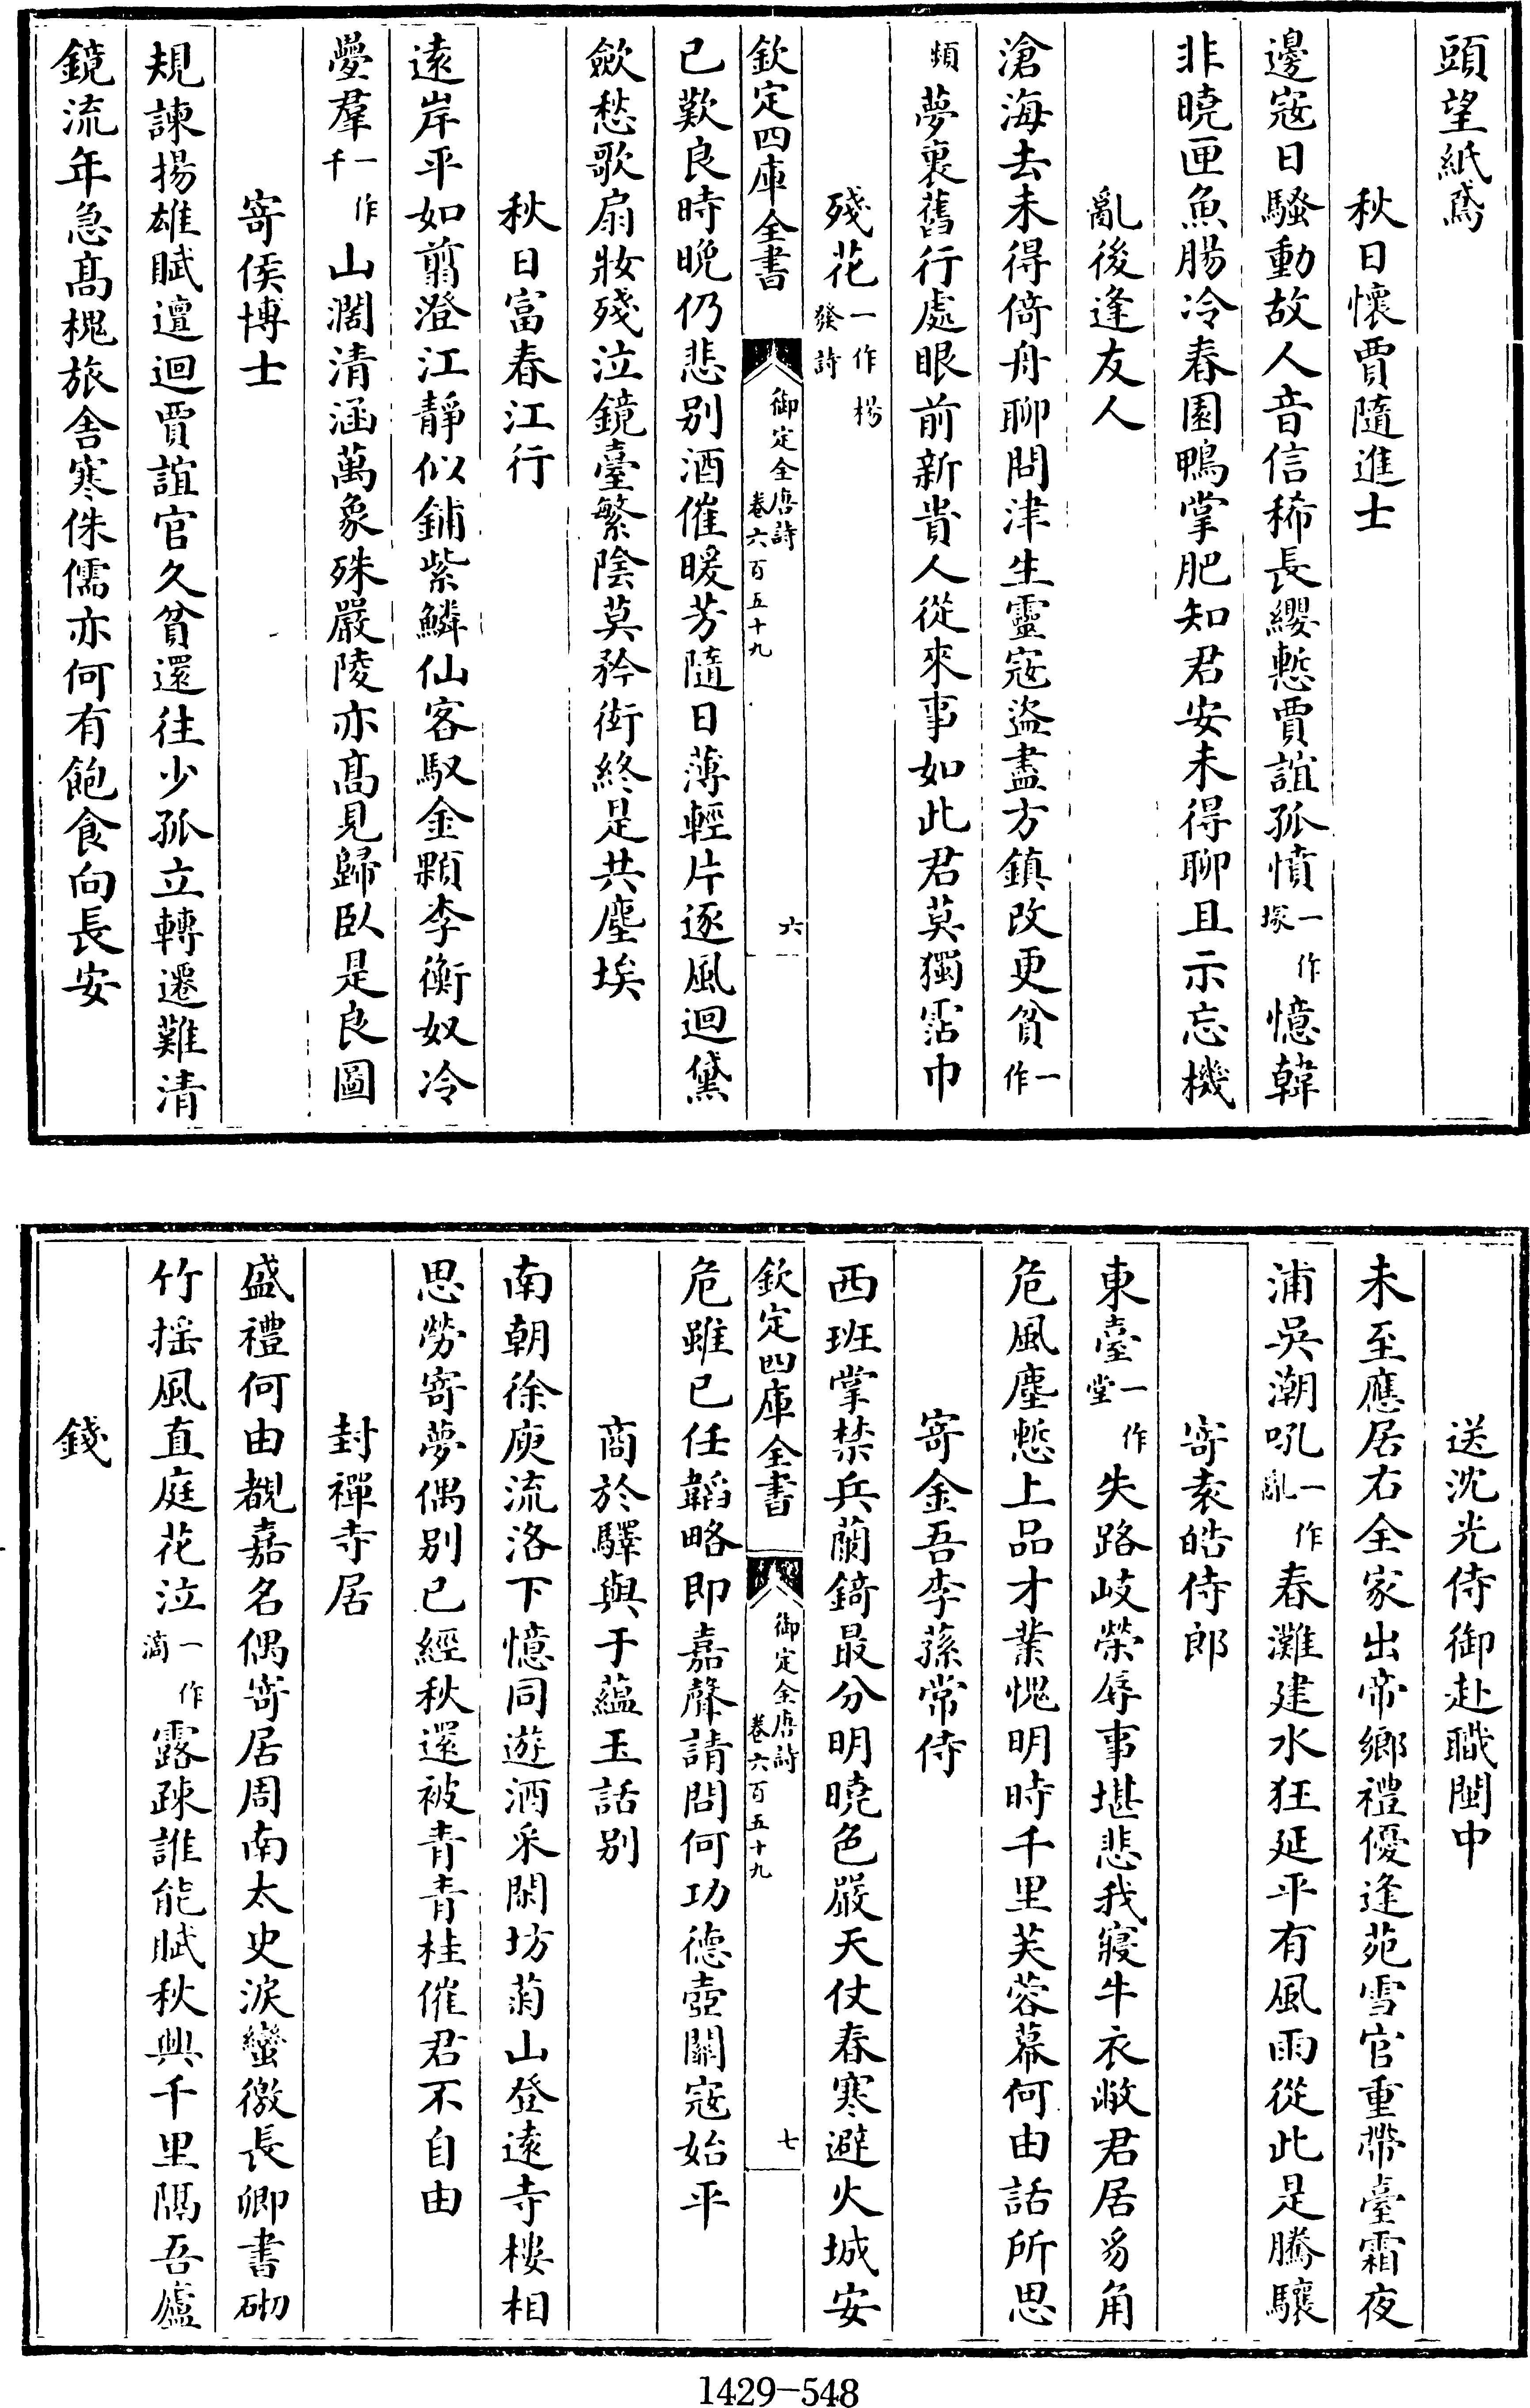 頭望紙鳶
秋日懷賈隨進士
邊寇日騷動故人音信稀長纓慙賈誼孤憤一作塚憶韓
非曉匣魚腸冷春園鴨掌肥知君安未得聊且示忘機
亂後逢友人
滄海去未得倚舟聊問津生靈寇盜盡方鎮改更貧一作
頻夢裏舊行處眼前新貴人從來事如此君莫獨霑巾
殘花一作楊發詩
欽定四庫全書
御定全唐詩
卷六百五十九
六
已歎良時晚仍悲别酒催暖芳隨日薄輕片逐風迴黛
斂愁歌扇妝殘泣鏡臺繁陰莫矜衒終是共塵埃
秋日富春江行
遠岸平如翦澄江靜似鋪紫鱗仙客馭金顆李衡奴冷
疊羣一作千山濶清涵萬象殊嚴陵亦髙見歸臥是良圖
寄侯博士
規諫揚雄賦邅迴賈誼官久貧還往少孤立轉遷難清
鏡流年急髙槐旅舍寒侏儒亦何有飽食向長安
送沈光侍御赴職閩中
未至應居右全家出帝鄉禮優逢苑雪官重帶臺霜夜
浦吳潮吼一作亂春灘建水狂延平有風雨從此是騰驤
寄袁皓侍郎
東臺一作堂失路岐榮辱事堪悲我寢牛衣敝君居豸角
危風塵慙上品才業愧明時千里芙蓉幕何由話所思
寄金吾李蓀常侍
西班掌禁兵蘭錡最分明曉色嚴天仗春寒避火城安
欽定四庫全書
御定全唐詩
卷六百五十九
七
危雖已任韜略即嘉聲請問何功德壼關寇始平
商於驛與于藴玉話别
南朝徐庾流洛下憶同遊酒采閑坊菊山登遠寺樓相
思勞寄夢偶别已經秋還被青青桂催君不自由
封禪寺居
盛禮何由覩嘉名偶寄居周南太史淚蠻徼長卿書砌
竹揺風直庭花泣一作滴露疎誰能賦秋興千里隔吾廬
錢
1429-548